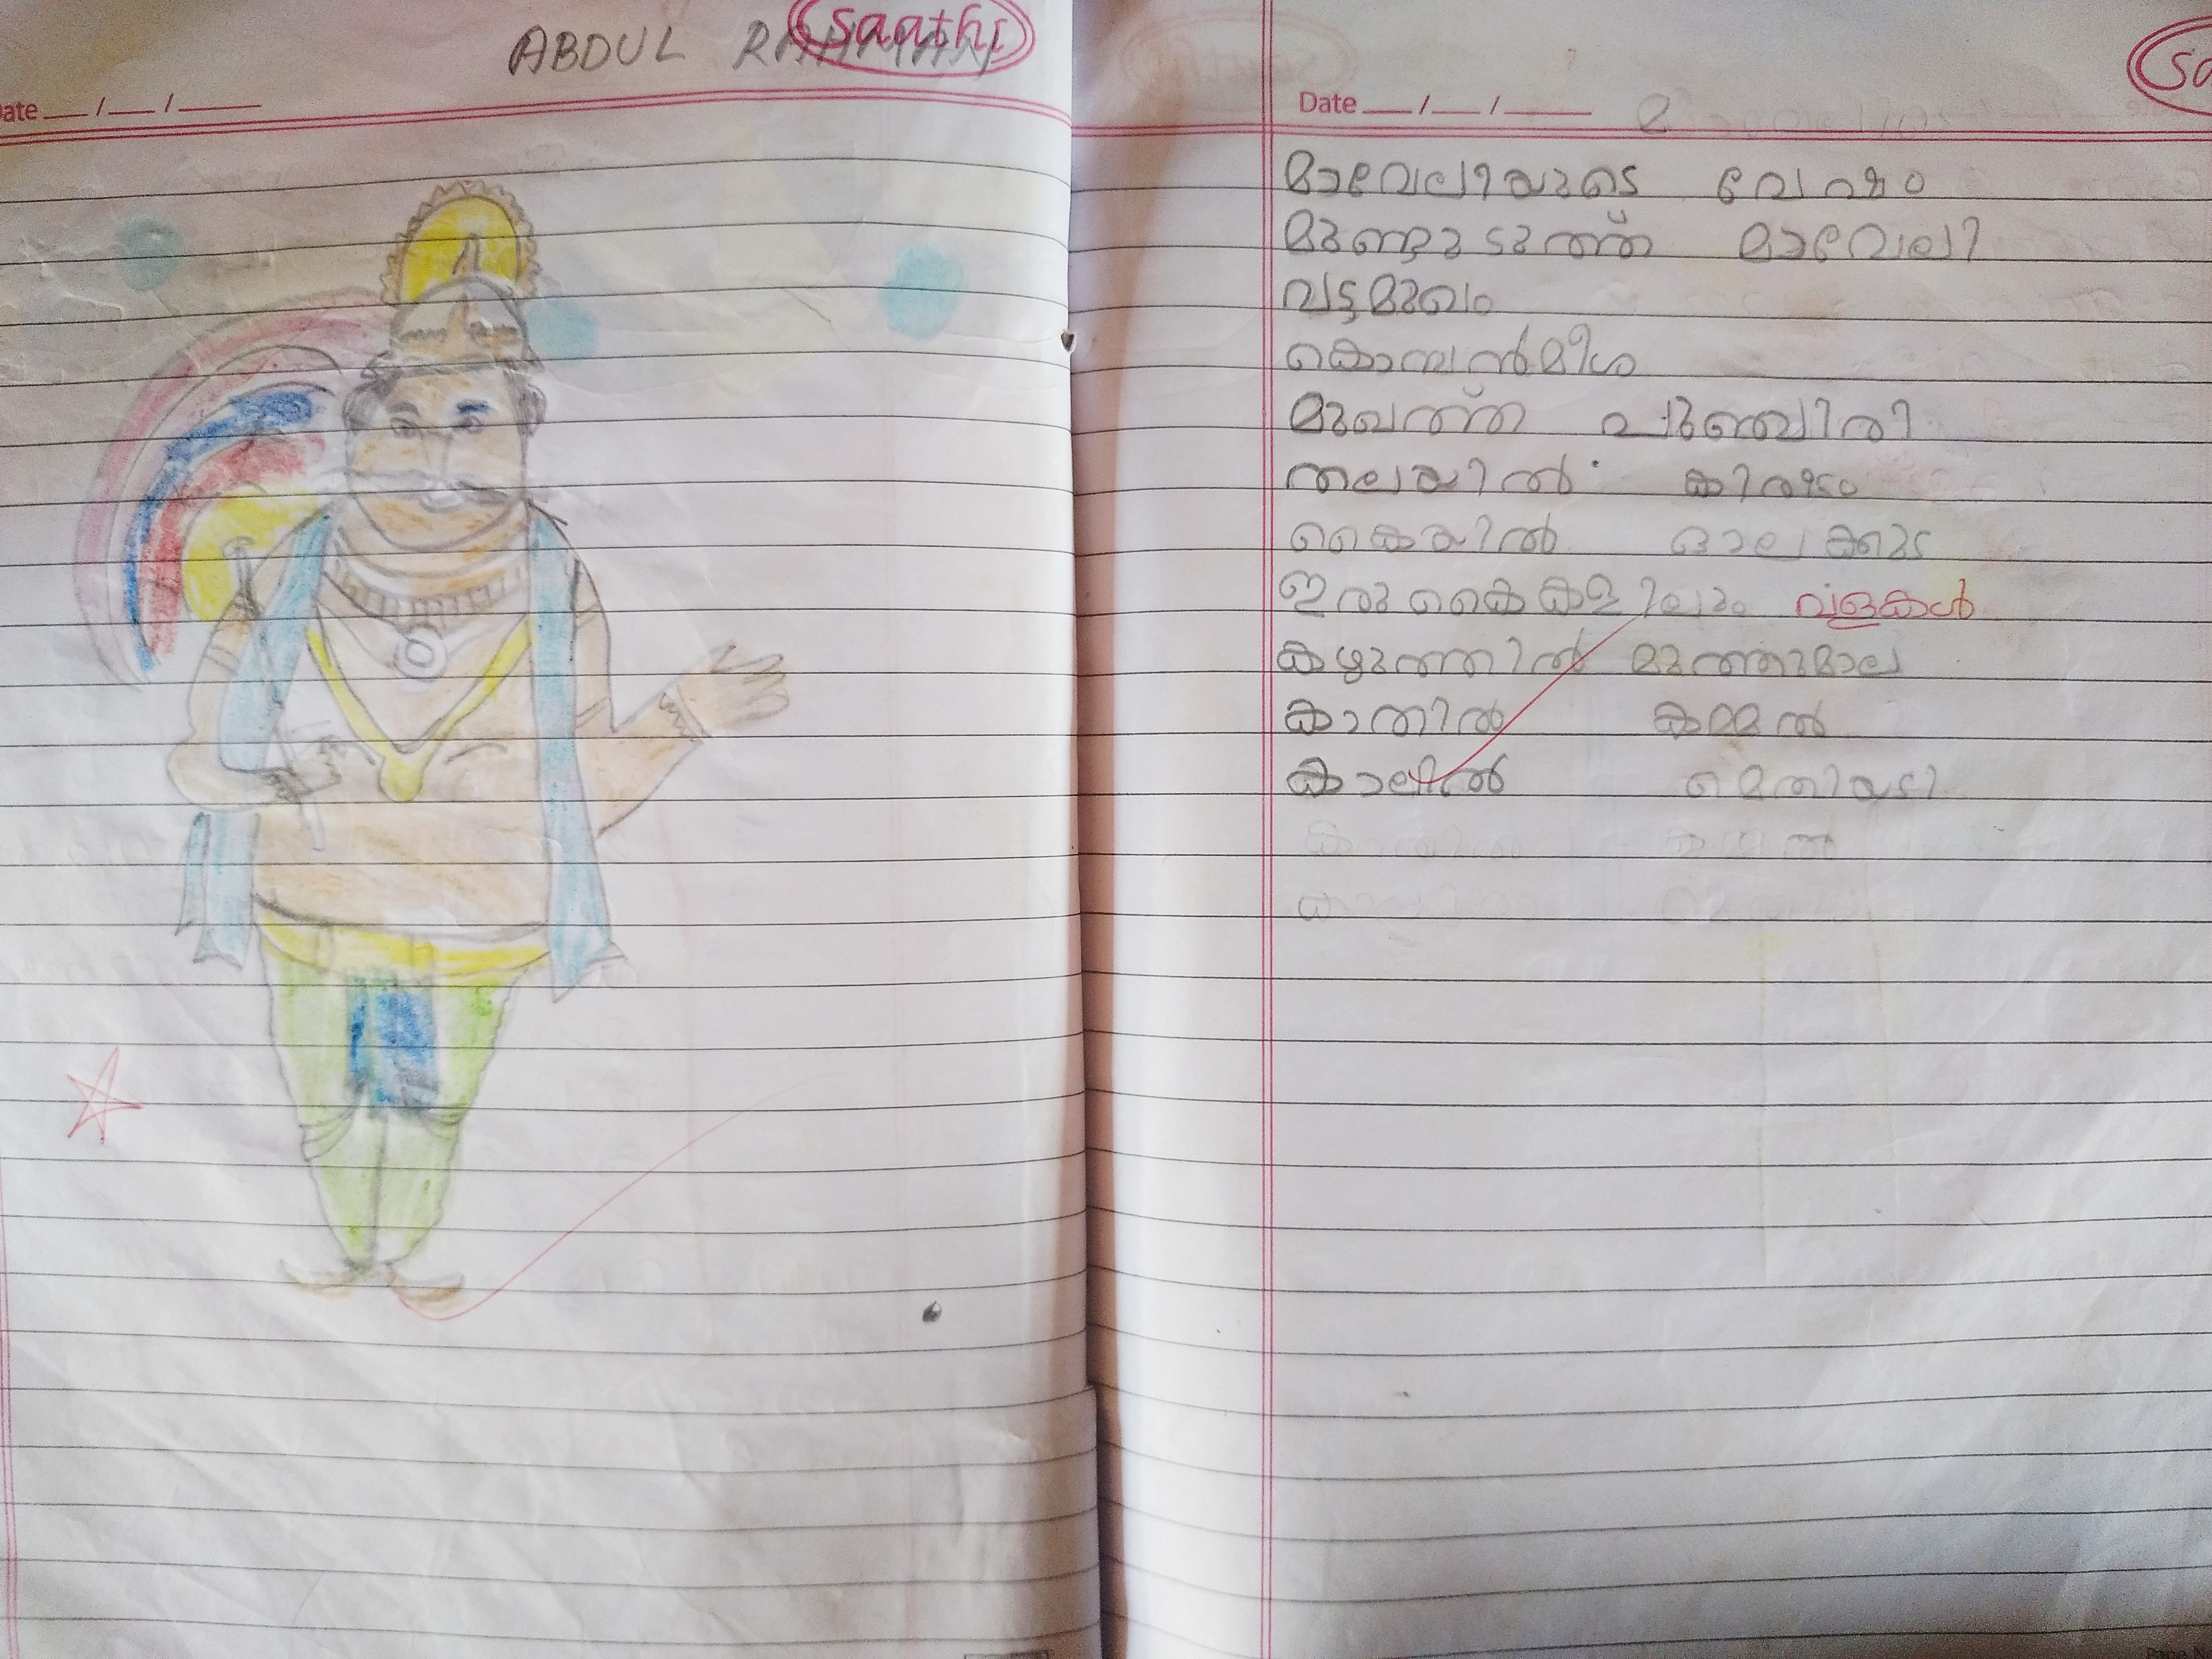 ABDUL RAHMAN
saathi
Date __/__/____
Date __/__/____
മാവേലിയുടെ വേഷം
മുണ്ടുടുത്ത് മാവേലി
വട്ടമുഖം
കൊമ്പൻമീശ
മുഖത്ത് പുഞ്ചിരി
തലയിൽ കിരീടം
കൈയിൽ ഓലക്കുട
ഇരുകൈകളിലും വളകൾ
കഴുത്തിൽ മുത്തുമാല
കാതിൽ കമ്മൽ
കാലിൽ മെതിയടി